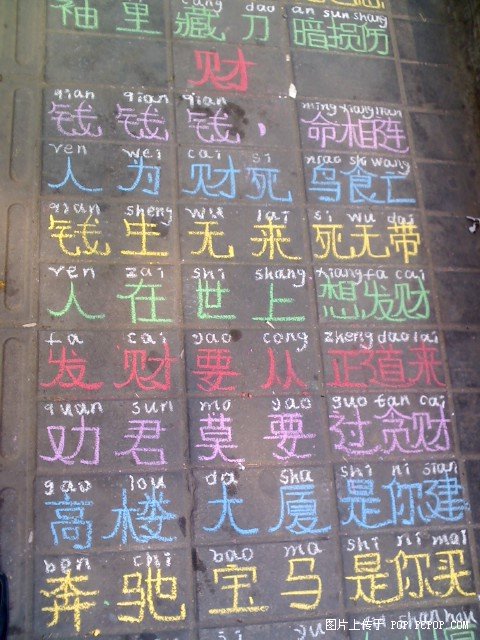 cang dao an sun shang
袖里 藏刀 暗损伤
财
qian qian qian ming xiang lian
钱钱钱，命相连
ren wei cai si niao shi wang
人为 财死 鸟食亡
qian sheng wu lai si wu dai
钱生 无来 死无带
ren zai shi shang xiang fa cai
人在 世上 想发财
fa cai yao cong zheng dao lai
发财 要从 正道来
quan sun mo yao guo tan cai
劝君 莫要 过贪财
gao lou da sha shi ni sian
高楼 大厦 是你建
ben chi bao ma shi ni mai
奔驰 宝马 是你买
图片上传于 POP.PCPOP.COM